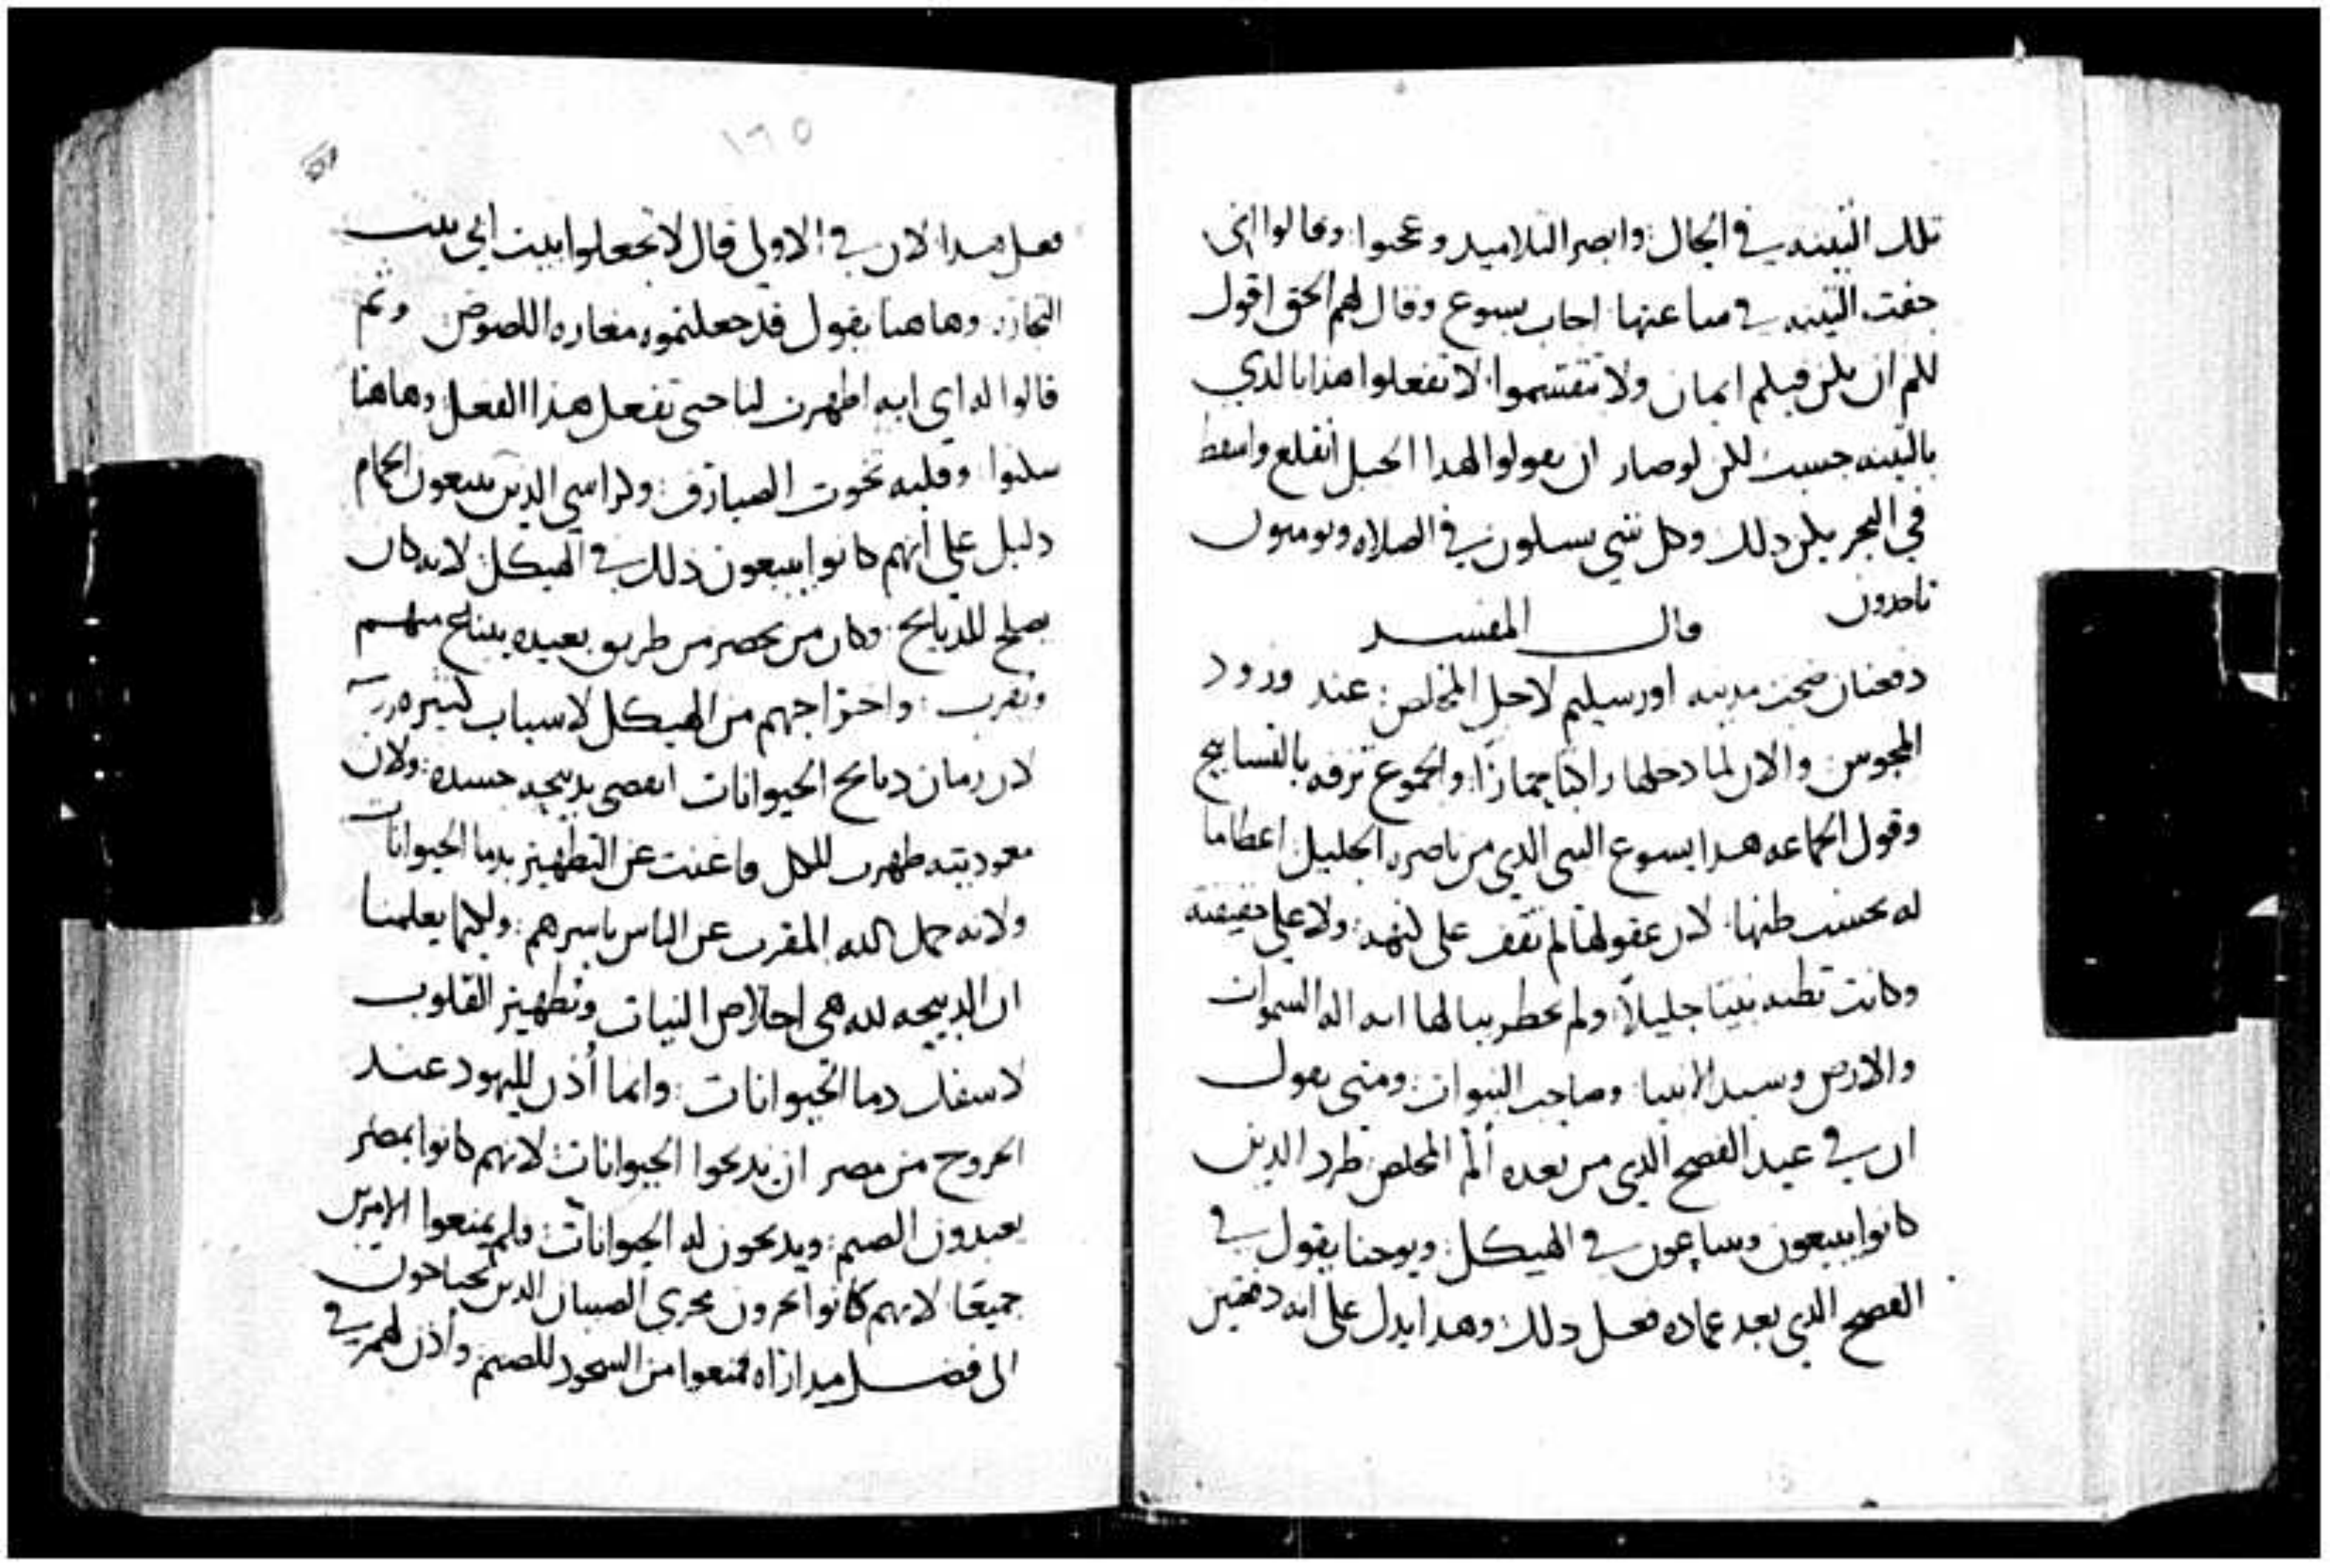 تلك التينه في الحال: وابصر التلاميد وعجبوا: وقالوا اني
جفت التينه في ساعتها: اجاب يسوع وقال لهم الحق اقول
لكم ان يكن فيكم ايمان ولا تنقسموا: لا تفعلوا هذا بالذي
بالتينه حسب لكن لو صار ان يقولوا لهدا الجبل انقلع واسقط
في البحر يكن دلك وكل شي يسلون في الصلاه ويومنون
ياخدون قال المفسر
دفعتان ضجت مدينه اورسيلم لاجل المخلص: عند ورود
المجوس: والان لما دخلها راكبا حمارًا: والجموع تزفه بالتسابيح
وقول الجماعه هدا يسوع النبي الدي من ناصره الجليل: اعطاما
له بحسب ظنها: لان عقولها لم تقف على كنهه: ولا على حقيقته
وكانت تظنه نبيًا جليلًا: ولم يخطر ببالها انه اله السموات
والارض وسيد الانبيا: وصاحب النبوات: ومتى يقول
ان في عيد الفصح الدي من بعده ألم المخلص: طرد الدين
كانوا يبيعون ويبتاعون في الهيكل: ويوحنا يقول في
الفصح الدي بعد عماده فعل دلك: وهدا يدل على انه دفعتين
١٦٥
فعل هدا: لان في الاولى قال لا تجعلوا بيت ابي بيت
التجاره: وهاهنا يقول قد جعلتموه مغاره اللصوص وثم
قالوا له اي ايه اظهرت لنا حتى تفعل هذا الفعل: وهاهنا
سكتوا وقلبه تخوت الصيارف: وكراسي الدين يبيعون الحمام
دليل على انهم كانوا يبيعون ذلك في الهيكل: لانه كان
يصلح للدبايح: وكان من يحضر من طريق بعيده يبتاع منهم
وتقرب: واخراجهم من الهيكل لاسباب كثيره
لان زمان دبايح الحيوانات انقضى بدبيحه جسده: ولان
معوديته طهرت للكل واغنت عن التطهير بدما الحيوانات
ولانه حمل الله المقرب عن الناس باسرهم: وليكما يعلمنا
ان الدبيحه لله هي اخلاص النيات وتطهير القلوب
لا سفك دما الحيوانات: وانما أُذن لليهود عند
الخروج من مصر ان يدبحوا الحيوانات: لانهم كانوا بمصر
يعبدون الصنم: ويدبحون له الحيوانات: فلم يمنعوا الامرين
جميعًا: لانهم كانوا يجرون مجرى الصبيان الدين يحتاجون
الى فضل مداراه فمنعوا من السجود للصنم وأذن لهم في